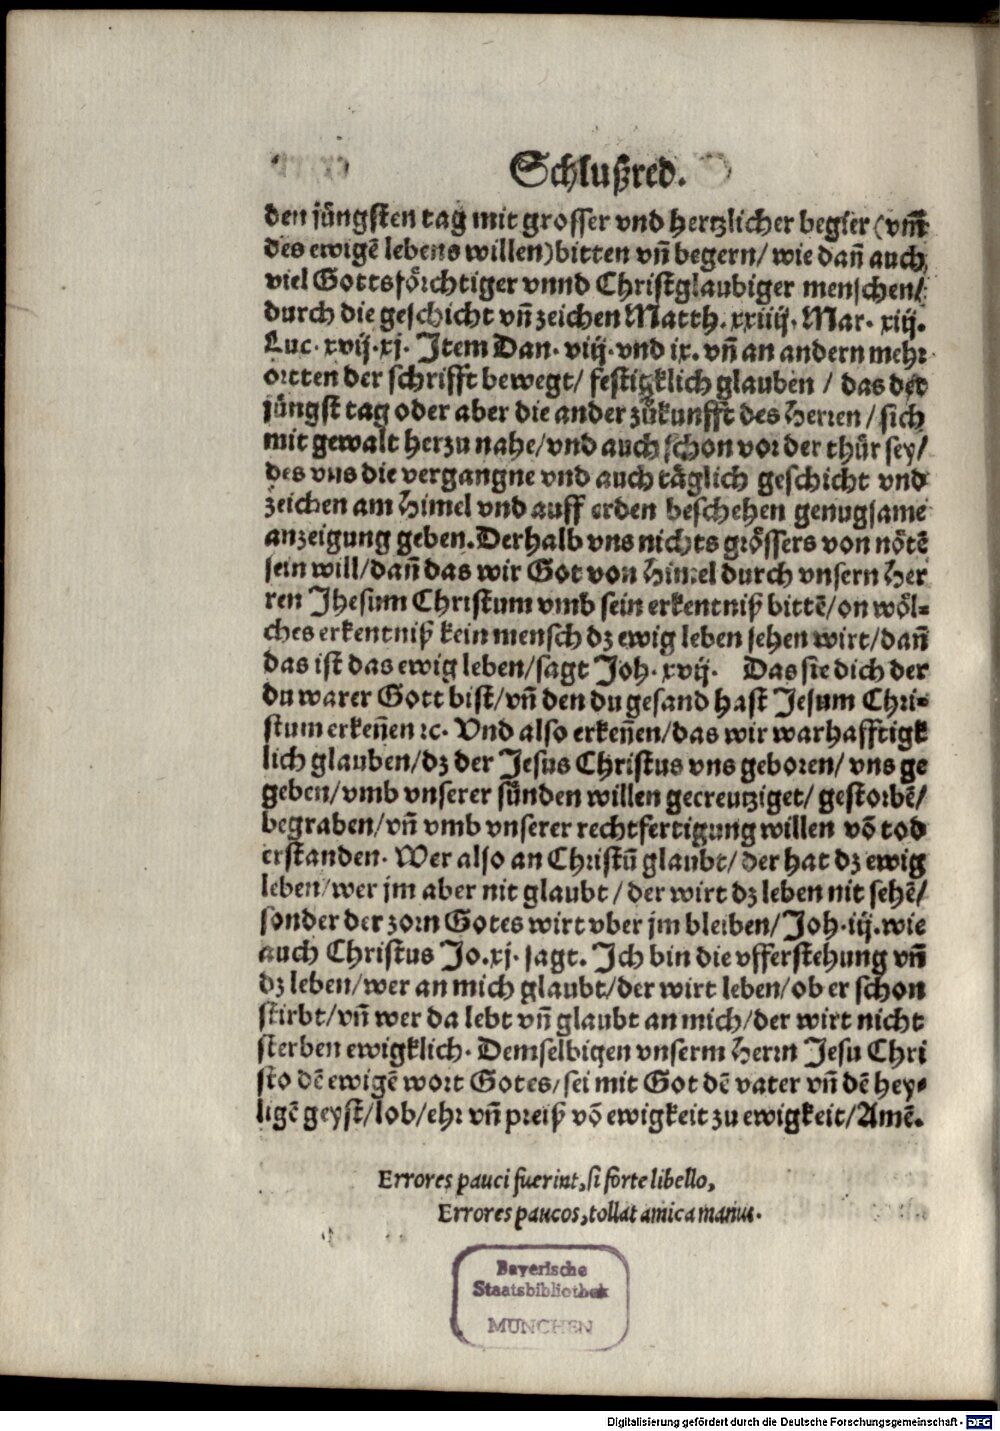 Schlußred.
den jüngsten tag mit grosser vnd hertzlicher begier (vm̃
des ewigẽ lebens willen) bitten vñ begern / wie dañ auch
viel Gottsförchtiger vnnd Christglaubiger menschen /
durch die geschicht vñ zeichen Matth. xxiiij. Mar. xiij.
Luc. xvij. xj. Item Dan. viij. vnd ix. vñ an andern mehr
ortten der schrifft bewegt / festigklich glauben / das der
jüngst tag oder aber die ander zůkunfft des Herren / sich
mit gewalt herzu nahe / vnd auch schon vor der thür sey /
des vns die vergangne vnd auch täglich geschicht vnd
zeichen am Himel vnd auff erden beschehen genugsame
anzeigung geben. Derhalb vns nichts grössers von nötẽ
sein will / dañ das wir Got von Himel durch vnsern Her
ren Jhesum Christum vmb sein erkentniß bittẽ / on wöl=
ches erkentniß kein mensch dz ewig leben sehen wirt / dañ
das ist das ewig leben / sagt Joh. xvij. Das sie dich der
du warer Gott bist / vñ den du gesand hast Jesum Chri=
stum erkeñen ꝛc. Vnd also erkeñen / das wir warhafftigk
lich glauben / dz der Jesus Christus vns geboren / vns ge
geben / vmb vnserer sünden willen gecreutziget / gestorbẽ /
begraben / vñ vmb vnserer rechtfertigung willen võ tod
erstanden. Wer also an Christũ glaubt / der hat dz ewig
leben / wer jm aber nit glaubt / der wirt dz leben nit sehẽ /
sonder der zorn Gotes wirt vber jm bleiben / Joh. iij. wie
auch Christus Jo. xj. sagt. Ich bin die vfferstehung vñ
dz leben / wer an mich glaubt / der wirt leben / ob er schon
stirbt / vñ wer da lebt vñ glaubt an mich / der wirt nicht
sterben ewigklich. Demselbigen vnserm Herrn Jesu Chri
sto dẽ ewigẽ wort Gotes / sei mit Got dẽ vater vñ dẽ hey=
ligẽ geyst / lob / ehr vñ preiß võ ewigkeit zu ewigkeit / Amẽ.
Errores pauci fuerint, si forte libello,
Errores paucos, tollat amica manus.
Bayerische
Staatsbibliothek
MÜNCHEN
Digitalisierung gefördert durch die Deutsche Forschungsgemeinschaft - DFG